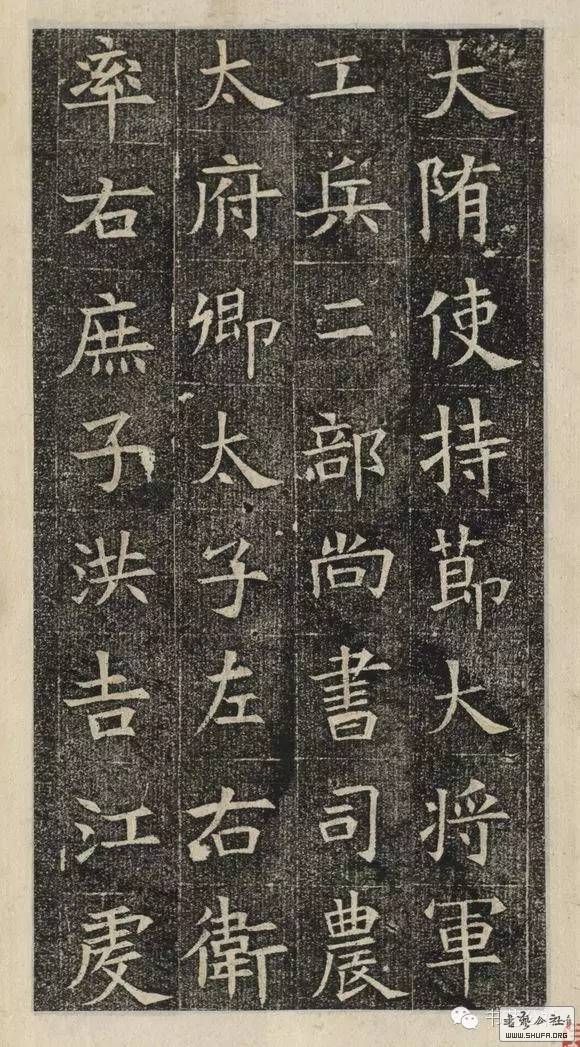 大隋使持節大將軍
工兵二部尚書司農
太府卿太子左右衛
率右庶子洪吉江虔
书艺公社
WWW.SHUFA.ORG